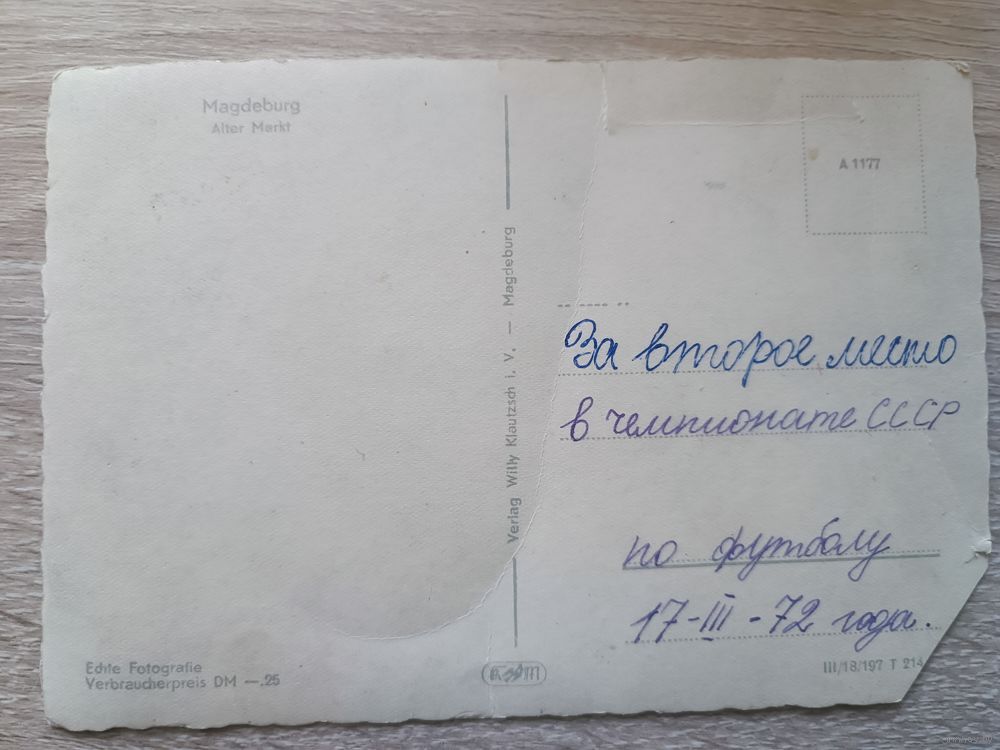 Magdeburg
Alter Markt
A 1177
Verlag Willy Klautzsch i. V. — Magdeburg
За второе место
в чемпионате СССР
по футболу
17-III-72 года.
Echte Fotografie
Verbraucherpreis DM —.25
III/18/197 T 214